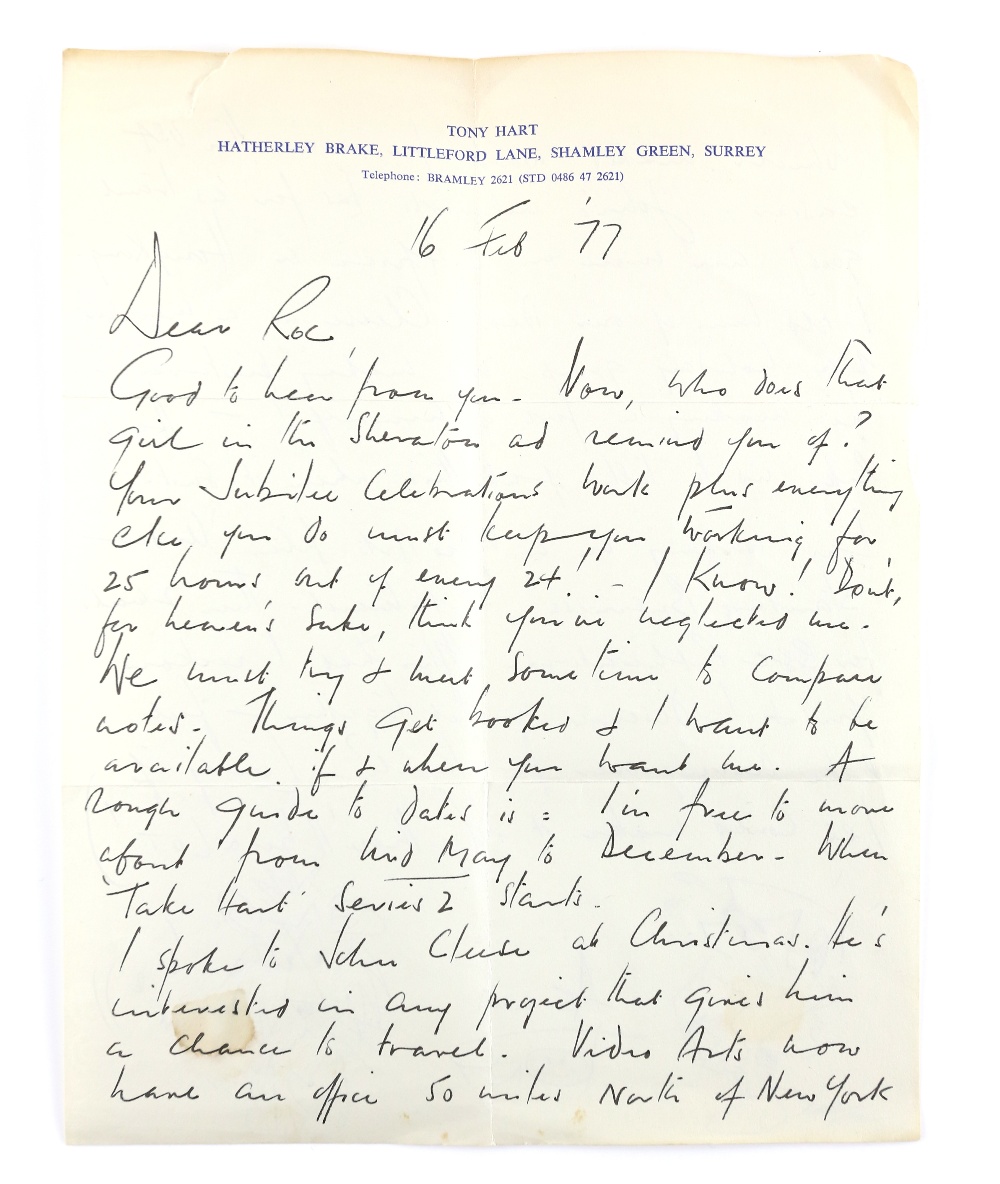 TONY HART
HATHERLEY BRAKE, LITTLEFORD LANE, SHAMLEY GREEN, SURREY
Telephone: BRAMLEY 2621 (STD 0486 47 2621)
16 Feb '77
Dear Roc,
Good to hear from you - Now, who does that
girl in the Sheraton ad remind you of?
Your Jubilee Celebrations work plus everything
else, you do must keep you working for
25 hours out of every 24! - I Know! Don't,
for heaven's sake, think you've neglected me.
We must try & meet sometime to compare
notes. Things get booked & I want to be
available if & when you want me. A
rough guide to dates is : I'm free to move
about from mid May to December - When
'Take Hart' Series 2 starts.
I spoke to John Cleese at Christmas. He's
interested in any project that gives him
a chance to travel. Video Arts now
have an office 50 miles North of New York